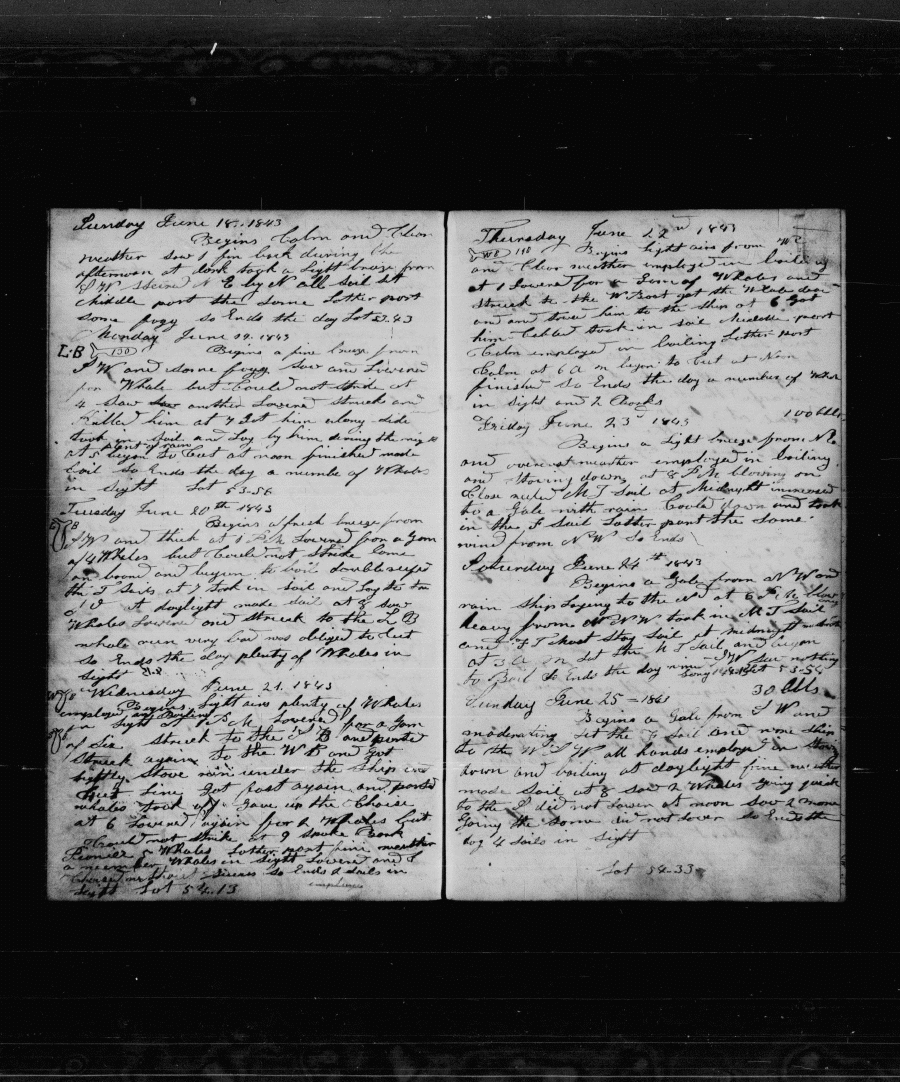 Sunday June 18, 1843
Begins Calm and Clear
weather saw 1 fin back during the
afternoon at dark took a Light breeze from
S W steered N E by N all sail set
middle part the same Latter part
some fogy so Ends the day Lat 53.43
Monday June 19. 1843
L.B 130 Begins a fine breeze from
S W and some fogg saw and Lowered
for Whale but Could not strike at
4 saw another Lowered struck and
Killed him at 7 Got him along side
took in sail and Lay by him during the night
plenty of rain
at 5 began to Cut at noon finished made
Sail so Ends the day a number of Whales
in sight Lat 53-56
Tuesday June 20th 1843
Begins a fresh breeze from
S W and thick at 1 P M Lowered for a Gam
of 4 Whales but Could not Strike Came
on board and begun to boil double reefed
the T Sails at 7 Took in Sail and
At daylight made sail at 8 saw
Whales Lowered and struck to the L B
whale run very bad was obliged to Cut
so Ends the day plenty of Whales in
sight
Wednesday June 21. 1843
Begins Light airs plenty of Whales
employed in Boiling
in sight at P M Lowered for a Gam
of Six struck to the B and parted
Struck again to the W B and Got
stove run under the ship and
Cut Line Got fast again and parted
whales took off Gave up the Chaise
at 6 Lowered again for 2 Whales but
Could not strike at 9 spoke Bark
Pioneer Whales Latter part fine weather
a number Whales in sight Lowered and
so Ends 2 Sails in
sight Lat 54.13
Thursday June 22nd 1843
W B 110 Begins light airs from
and Clear weather employed in boiling
at 1 Lowered for a Gam of Whales and
struck to the W Boat got the Whale
and and took him to the ship at 6 Got
him took in sail Middle part
Calm employed in boiling Latter part
Calm at 6 A m began to Cut at Noon
finished So Ends the day a number of Whales
in sight and 2
100 bbls
Friday June 23d 1843
Begins a Light breeze from N E
and overcast weather employed in boiling
and stowing down at 8 P M blowing on
Close reefed M T Sail at Midnight increased
to a Gale with rain down and took
in the F Sail Latter part the same
wind from N W So Ends
Saturday June 24th 1843
Begins a Gale from N W and
rain Ship Laying to the at 6 P M blowing
heavy from N N W took in M T Sail
and Mast Stay Sail at midnight
at 3 A m Set the M T Sail and began
to Boil So Ends the day S W saw nothing
Lat 53-54
30 bbls
Sunday June 25 - 1843
Begins a Gale from S W and
moderating Set the F Sail and wore ship
to the W all hands employed in stowing
down and boiling at daylight fine weather
made Sail at 8 saw 2 Whales going quick
to the did not Lower at noon saw 2 more
Going the same did not Lower so Ends the
4 Sails in sight
Lat 54-33